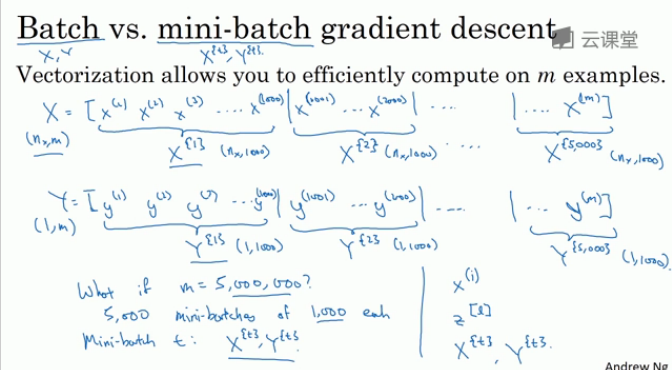 Batch vs. mini-batch gradient descent
云课堂
X, Y
X^{t}, Y^{t}.
Vectorization allows you to efficiently compute on m examples.
X = [x^(1) x^(2) x^(3) .... x^(1000) | x^(1001) ... x^(2000) | .... | .... x^(m)]
(n_x, m)
X^{1} (n_x, 1000)
X^{2} (n_x, 1000) ....
X^{5,000} (n_x, 1000)
Y = [y^(1) y^(2) y^(3) ... y^(1000) | y^(1001) ... y^(2000) | .... | ... y^(m)]
(1, m)
Y^{1} (1, 1000)
Y^{2} (1, 1000)
Y^{5,000} (1, 1000)
What if m = 5,000,000?
5,000 mini-batches of 1,000 each
Mini-batch t: X^{t}, Y^{t}.
x^(i)
z^[l]
X^{t}, Y^{t}.
Andrew Ng